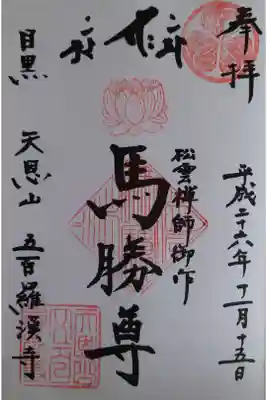 奉拝
平成二十六年十一月十五日
松雲禅師御作
馬勝尊
目黒 天恩山 五百羅漢寺